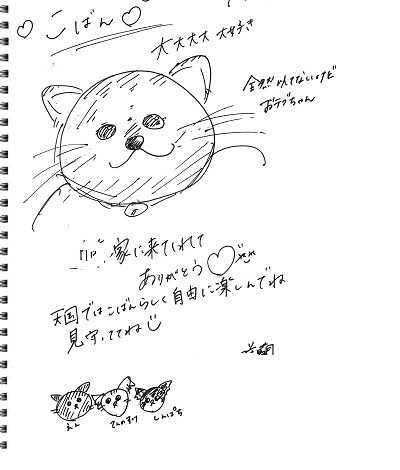 ♡ こばん ♡
大大大大 大好き
全然似てないけど
おデブちゃん
家に来てくれて
ありがとう♡
天国ではこばんらしく自由に楽しんでね
見守っててね
えん てんすけ しんぱち